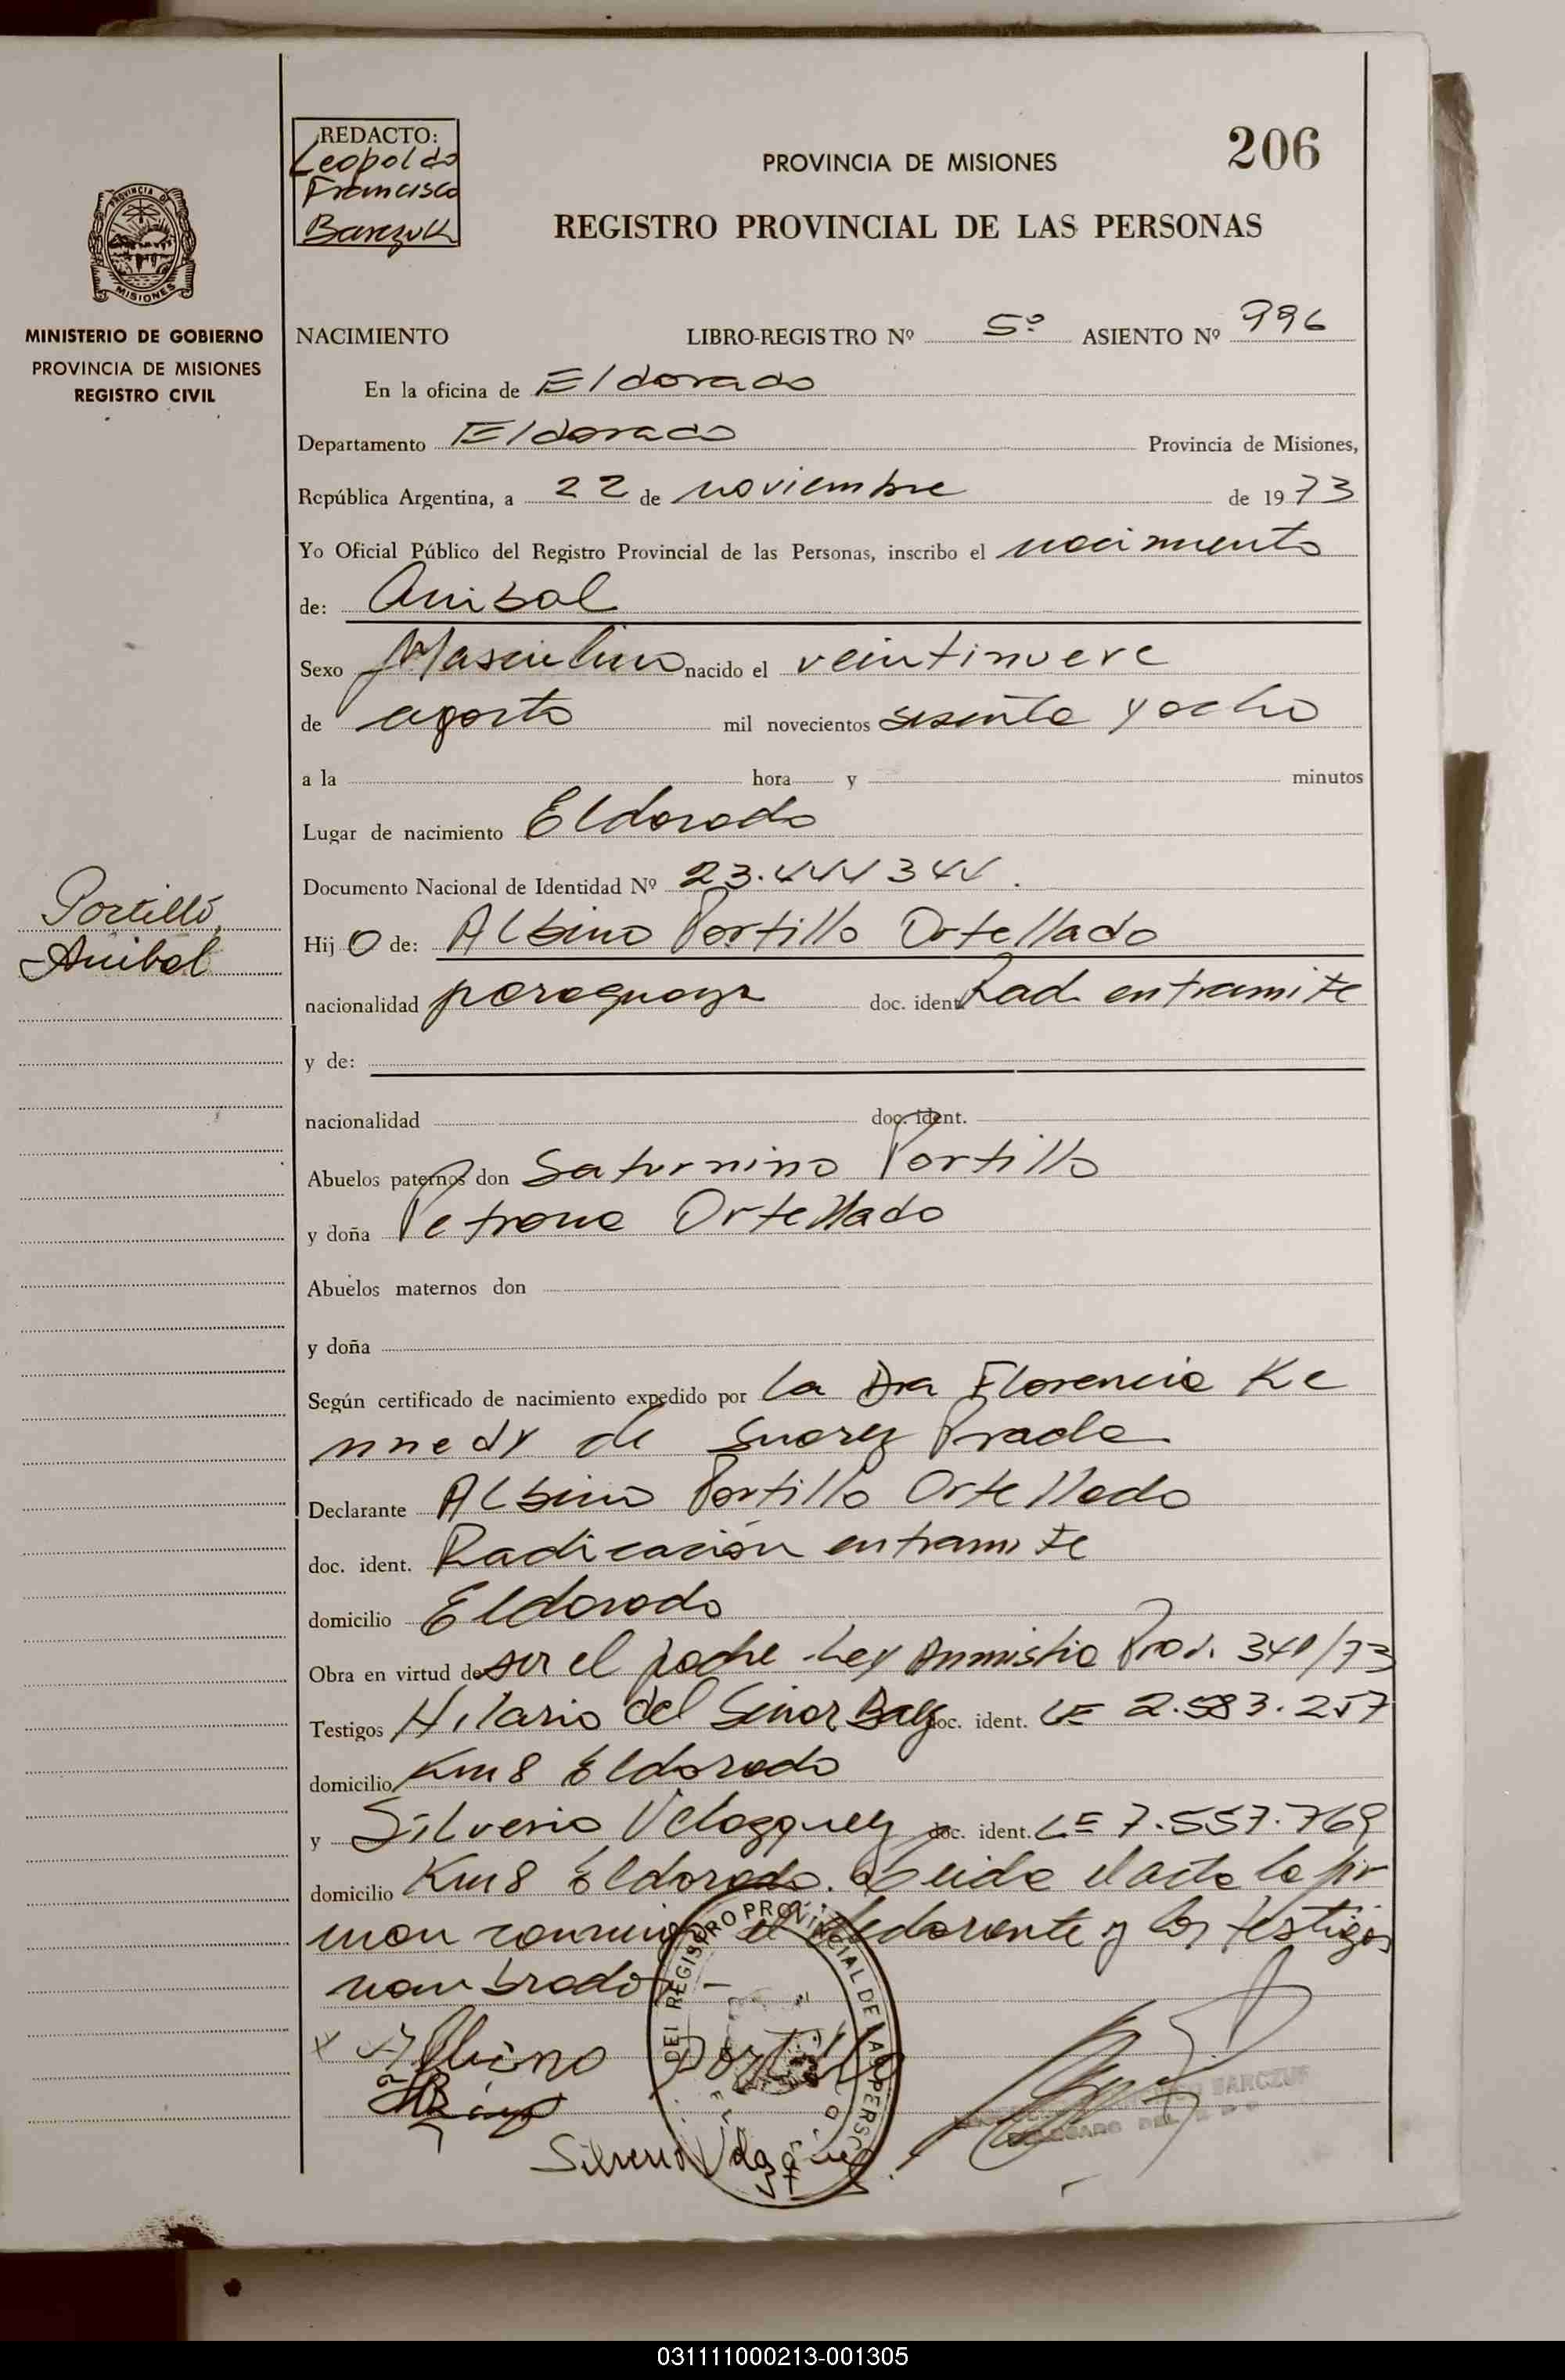 REDACTO:
Leopoldo
Francisco
Barczuk
PROVINCIA DE MISIONES
206
REGISTRO PROVINCIAL DE LAS PERSONAS
PROVINCIA DE
MISIONES
MINISTERIO DE GOBIERNO
PROVINCIA DE MISIONES
REGISTRO CIVIL
NACIMIENTO LIBRO-REGISTRO Nº 5º ASIENTO Nº 996
En la oficina de Eldorado
Departamento Eldorado Provincia de Misiones,
República Argentina, a 22 de noviembre de 1973
Yo Oficial Público del Registro Provincial de las Personas, inscribo el nacimiento
de: Anibal
Sexo Masculino nacido el veintinueve
de agosto mil novecientos sesenta y ocho
a la hora y minutos
Lugar de nacimiento Eldorado
Documento Nacional de Identidad Nº 23.444344.
Portillo,
Anibal
Hijo de: Albino Portillo Ortellado
nacionalidad paraguaya doc. ident. Rad. en tramite
y de:
nacionalidad doc. ident.
Abuelos paternos don Saturnino Portillo
y doña Petrona Ortellado
Abuelos maternos don
y doña
Según certificado de nacimiento expedido por la Dra Florencia Ke
nnedy de Suarez Prada
Declarante Albino Portillo Ortellado
doc. ident. Radicación en tramite
domicilio Eldorado
Obra en virtud de ser el padre Ley Anmistia Prov. 341/73
Testigos Hilario del Señor Baez doc. ident. LE 2.583.257
domicilio Km 8 Eldorado
y Silverio Velazquez doc. ident. LE 7.557.769
domicilio Km 8 Eldorado. Leida el acta la fir
man conmigo el declarante y los testigos
nombrados
x Albino Portillo
Silverio Velazquez
DEL REGISTRO PROVINCIAL DE LAS PERSO
BARCZUK
DELEGADO DEL
031111000213-001305